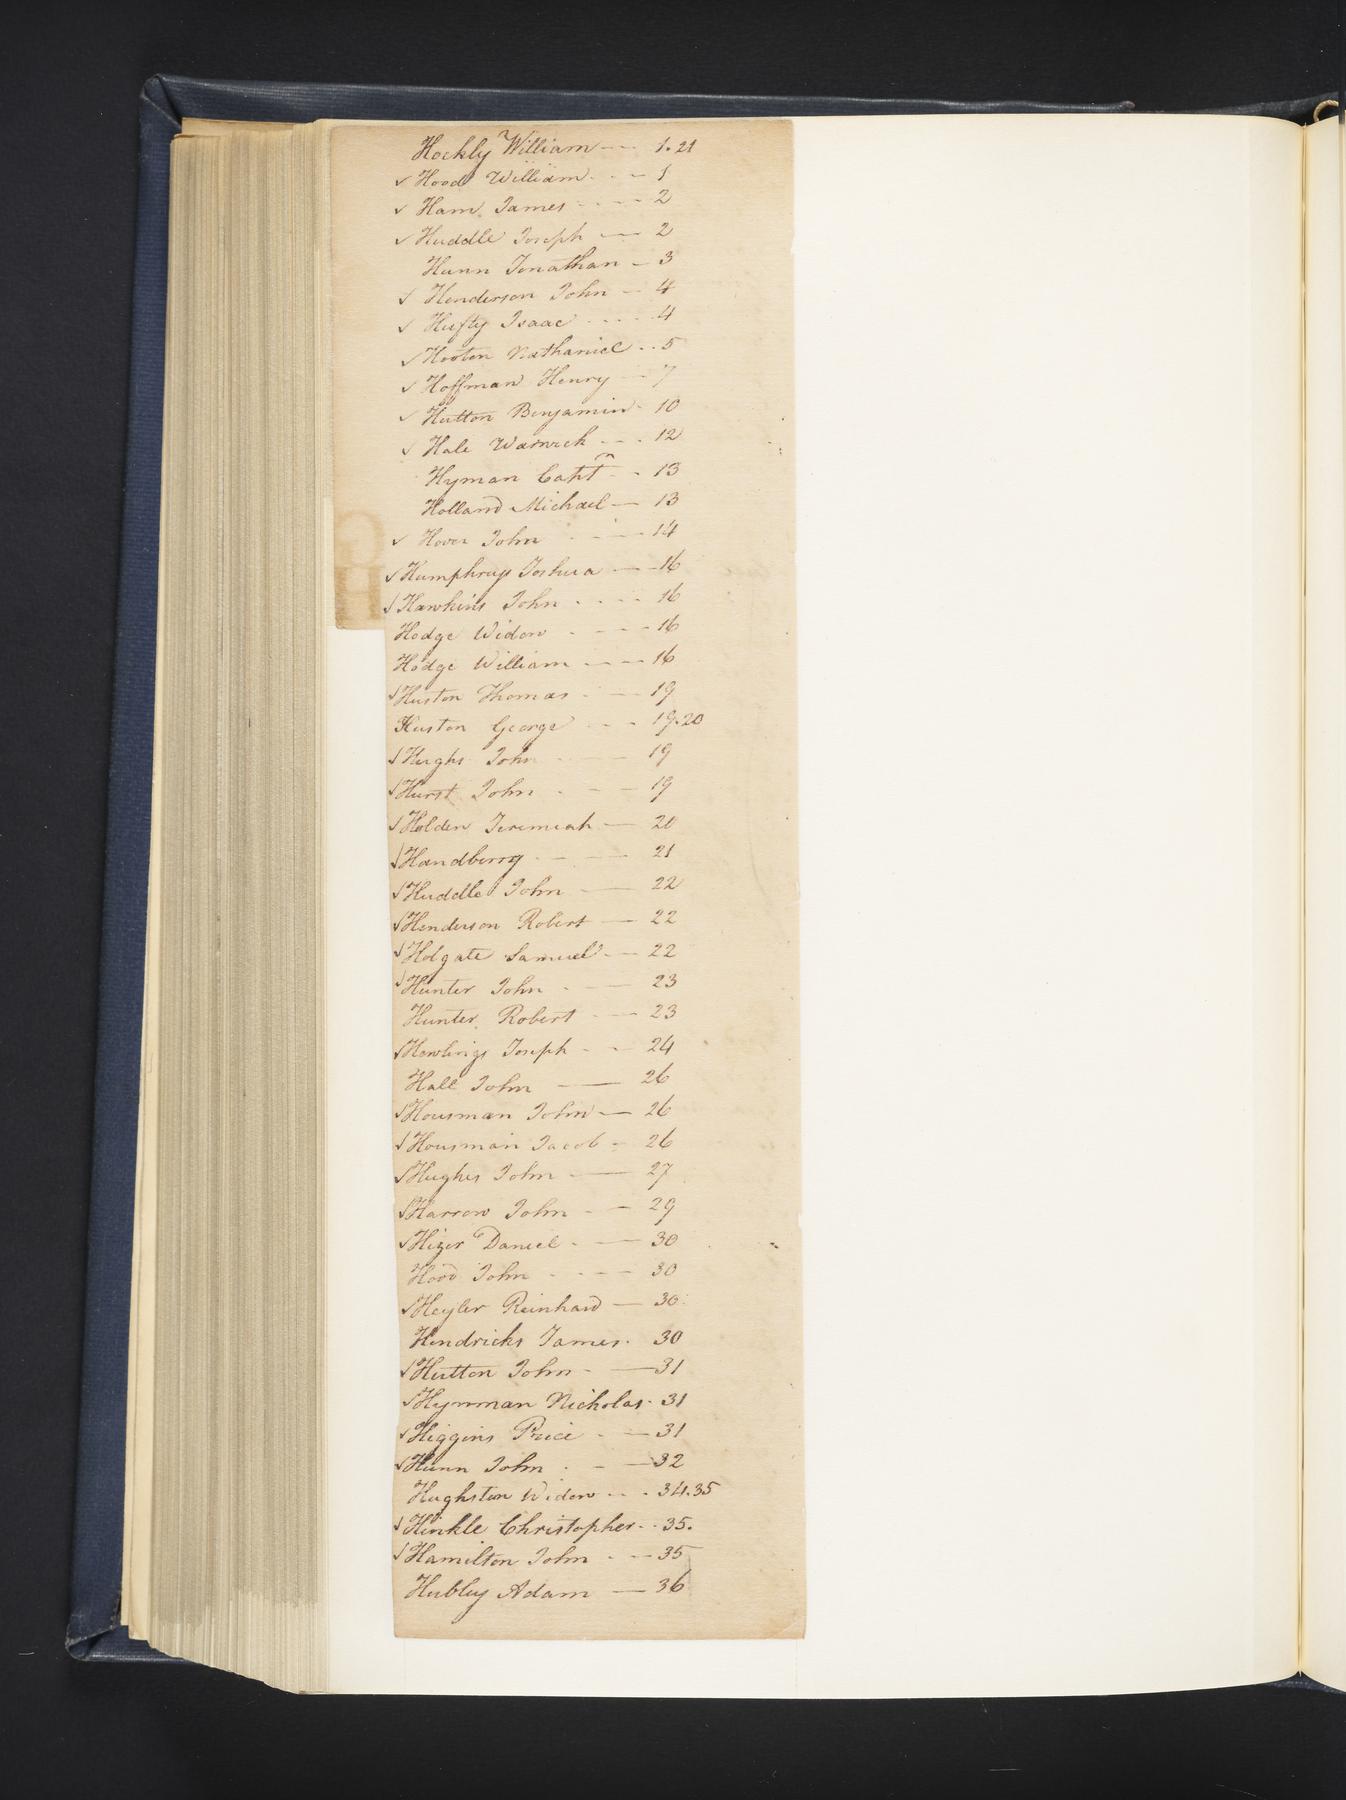 Hockly William -- 1.21
✓ Hood William - - - 1
✓ Ham James - - - - 2
✓ Huddle Joseph -- 2
Hunn Jonathan - 3
✓ Henderson John - 4
✓ Hufty Isaac - - - - 4
✓ Hooton Nathaniel - - 5
✓ Hoffman Henry - 7
✓ Hutton Benjamin - 10
✓ Hale Warwick - - - 12
Hyman Capt - 13
Holland Michael - 13
✓ Hover John - - - 14
✓ Humphreys Joshua -- 16
✓ Hawkins John - - - - 16
Hodge Widow - - - - 16
Hodge William - - - - 16
✓ Huston Thomas - -- 19
Huston George - - - 19.20
✓ Hughs John - - - 19
✓ Hurst John - - - 19
✓ Holden Jeremiah - 20
✓ Handberry - - - 21
✓ Huddle John - 22
✓ Henderson Robert - 22
✓ Holgate Samuel - - 22
✓ Hunter John - - 23
Hunter Robert - - - 23
✓ Howlings Joseph - - 24
Hall John - 26
✓ Housman John - 26
✓ Housman Jacob - 26
✓ Hughes John - 27
✓ Harrow John - - 29
✓ Hizer Daniel - - 30
Hood John - - - - 30
✓ Heyler Reinhard - 30
Hendricks James - 30
✓ Hutton John - - 31
✓ Hynman Nicholas - 31
✓ Higgins Price - - 31
✓ Hunn John - - - 32
Hughston Widow - - - 34.35
✓ Hinkle Christopher - - 35.
✓ Hamilton John - - - 35
Hubley Adam - 36
H